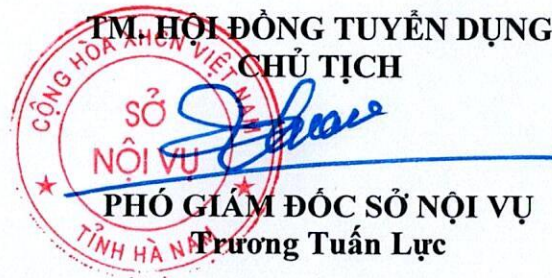 TM. HỘI ĐỒNG TUYỂN DỤNG
CHỦ TỊCH
CỘNG HÒA XHCN VIỆT NAM
SỞ
NỘI VỤ
TỈNH HÀ NAM
PHÓ GIÁM ĐỐC SỞ NỘI VỤ
Trương Tuấn Lực